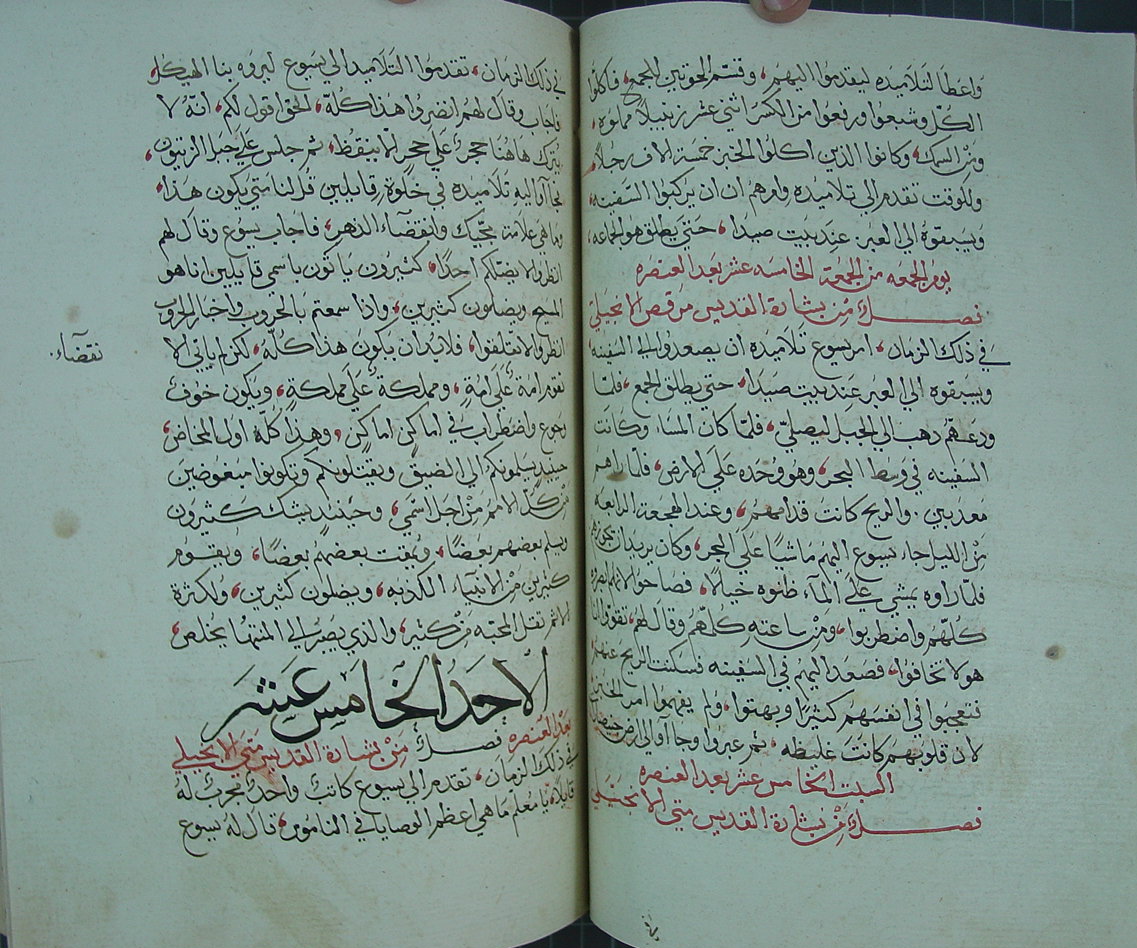 واعطا لتلاميده ليقدموا اليهم، وقسم الحوتين للجمع، فاكلوا
الكل وشبعوا ورفعوا من الكسر اثني عشر زنبيلاً مملوه،
ومن السمك، وكانوا الذين اكلوا الخبز خمسة الاف رجلاً
وللوقت تقدم الي تلاميده وامرهم ان يركبوا السفينه
ويسبقوه الي العبر عند بيت صيدا، حتي يطلق هو الجماعه،
يوم الجمعه من الجمعة الخامسه عشر بعد العنصره
نصلي من بشارة القديس مرقص الانجيلي
في ذلك الزمان، امر يسوع تلاميده ان يصعدوا الي السفينه
ويسبقوه الي العبر عند بيت صيدا، حتي يطلق الجمع، فلمّا
ودعهم دهب الي الجبل ليصلي، فلمّا كان المساء وكانت
السفينه في وسط البحر، وهو وحده علي الارض، فلمّا راهم
معدبين، والريح كانت قدامهم، وعند الهجعة الرابعه
من الليل جاء يسوع اليهم ماشياً علي البحر، وكان يريد ان يجوزهم
فلمّا راوه يمشي علي الماء ظنوه خيالاً، فصاحوا لانهم ابصروه
كلّهم واضطربوا، ومن ساعته كلمهم وقال لهم، تقووا انا
هو لا تخافوا، فصعد اليهم في السفينه فسكنت الريح عنهم
فتعجبوا في انفسهم كثيرًا وبهتوا، ولم يفهموا امر الخبز
لان قلوبهم كانت غليظه، ثم عبروا وجاآوا الي ارض جينصار
السبت الخامس عشر بعد العنصره
نصلي من بشارة القديس متي الانجيلي
في ذلك الزمان، تقدموا التلاميد الي يسوع ليروه بنا الهيكل،
فاجاب وقال لهم انضروا هذا كلّه، الحق اقول لكم، انّه لا
يترك هاهنا حجرً علي حجر الا ينقظ، ثم جلس علي جبل الزيتون،
فجاآوا اليه تلاميده في خلوة، قايلين قل لنا متي يكون هذا،
وما هي علامة مجيك وانقضاء الدهر، فاجاب يسوع وقال لهم
انظروا لا يضلكم احدًا، كثيرون ياتون باسمي قايلين انا هو
المسيح ويضلون كثيرين، واذا سمعتم بالحروب واخبار الحروب
انظروا لا تقلقوا، فلا بد ان يكون هذا كلّه، لكن لم ياتي الا
نقضاء
تقوم امة علي امة، ومملكة علي مملكة، ويكون خوف
وجوع واضطراب في اماكن اماكن، وهذا كلّه اول المخاض،
حينيد يسلمونكم الي الضيق ويقتلونكم وتكونوا مبغوضين
من كل الامم من اجل اسمي، وحينيد يشك كثيرون
ويسلم بعضهم بعضًا، ويمقت بعضهم بعضًا، ويقوم
كثيرين من الانبياء الكدبه، ويضلون كثيرين، ولكثرة
الاثم تقل المحبه من كثير، والذي يصبر الي المنتها يخلص،
الاحد الخامس عشر
بعد العنصره نصلي من بشارة القديس متي الانجيلي
في ذلك الزمان، تقدم الي يسوع كاتبً واحدً يجربً له
قايلاً، يا معلم ما هي اعظم الوصايا في الناموس، قال له يسوع